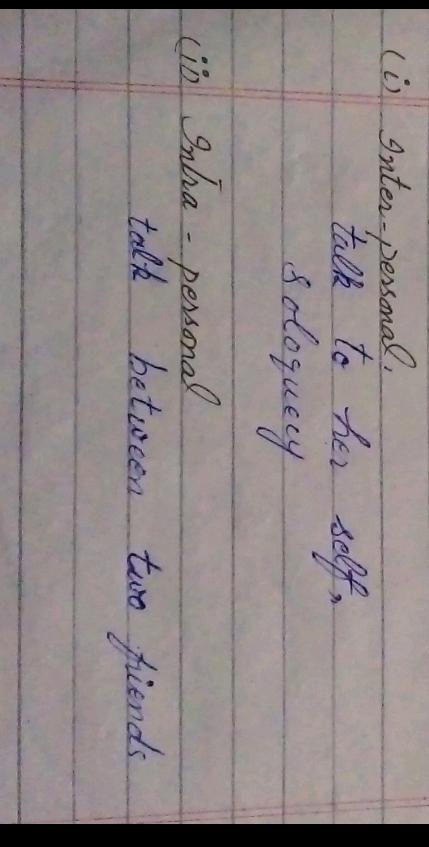 (i) Inter-personal.
talk to her self,
Soloquecy
(ii) Intra-personal
talk between two friends